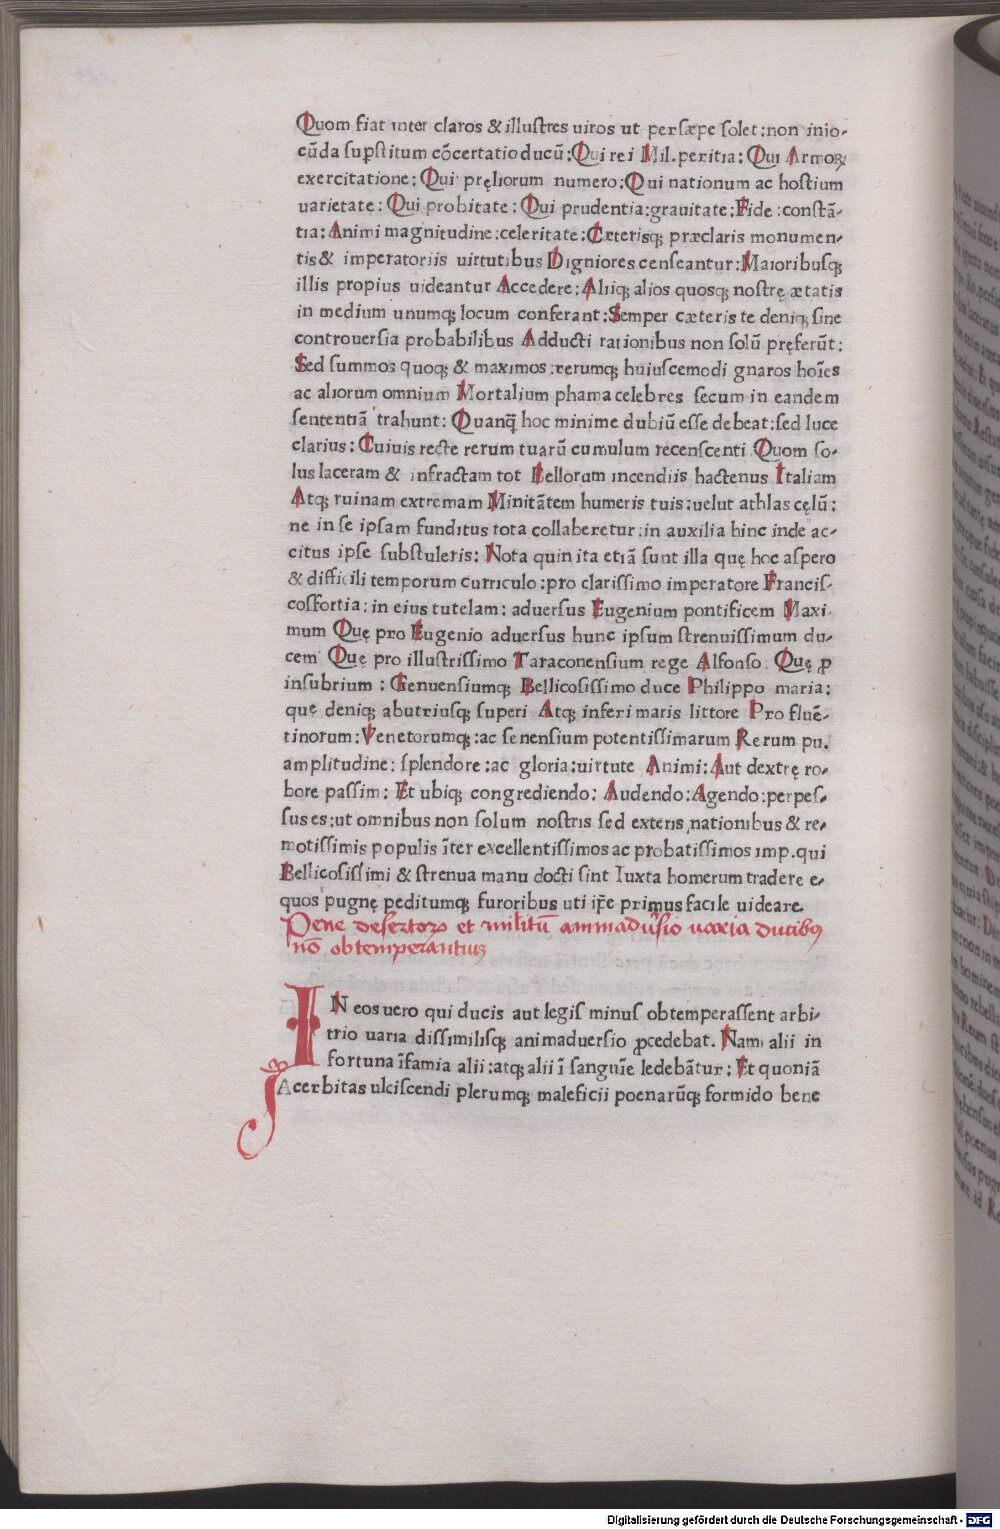 Quom fiat inter claros & illuſtres uiros ut perſæpe ſolet:non inio-
cũda ſupſtitum cõcertatio ducũ: Qui rei Mil.peritia: Qui Armoꝝ
exercitatione: Qui pręliorum numero: Qui nationum ac hoſtium
uarietate: Qui probitate: Qui prudentia:grauitate: Fide:conſtã-
tia: Animi magnitudine:celeritate: Cæterisqꝫ præclaris monumen-
tis & imperatoriis uirtutibus Digniores cenſeantur: Maioribuſqꝫ
illis propius uideantur Accedere: Aliiqꝫ alios quosqꝫ noſtrę ætatis
in medium unumqꝫ locum conferant: Semper cæteris te deniqꝫ ſine
controuerſia probabilibus Adducti rationibus non ſolũ pręferũt:
Sed ſummos quoqꝫ & maximos:rerumqꝫ huiuſcemodi gnaros hoĩes
ac aliorum omnium Mortalium phama celebres ſecum in eandem
ſententiã trahunt: Quanq̃ hoc minime dubiũ eſſe debeat:ſed luce
clarius: Cuiuis recte rerum tuarũ cumulum recenſcenti Quom ſo-
lus laceram & infractam tot Bellorum incendiis hactenus Italiam
Atqꝫ ruinam extremam Minitãtem humeris tuis:uelut athlas cęlũ:
ne in ſe ipſam funditus tota collaberetur:in auxilia hinc inde ac-
citus ipſe ſubſtuleris: Nota quin ita etiã ſunt illa quę hoc aſpero
& difficili temporum curriculo:pro clariſſimo imperatore Franciſ-
coſfortia: in eius tutelam: aduerſus Eugenium pontificem Maxi
mum Quę pro Eugenio aduerſus hunc ipſum ſtrenuiſſimum du-
cem Quę pro illuſtriſſimo Taraconenſium rege Alfonſo. Quę ꝓ
inſubrium: Genuenſiumqꝫ Bellicoſiſſimo duce Philippo maria:
quę deniqꝫ abutriuſqꝫ ſuperi Atqꝫ inferi maris littore Pro fluẽ-
tinorum: Venetorumqꝫ:ac ſenenſium potentiſſimarum Rerum pu.
amplitudine: ſplendore:ac gloria:uirtute Animi: Aut dextrę ro-
bore paſſim: Et ubiqꝫ congrediendo: Audendo: Agendo:perpeſ-
ſus es:ut omnibus non ſolum noſtris ſed exteris nationibus & re-
motiſſimis populis ĩter excellentiſſimos ac probatiſſimos imp.qui
Bellicoſiſſimi & ſtrenua manu docti ſint Iuxta homerum tradere e-
quos pugnę peditumqꝫ furoribus uti ip̃e primus facile uideare.
Pene deſertorꝫ et militũ animaduerſio uaria ducibꝰ
nõ obtemperantiuꝫ
IN eos uero qui ducis aut legis minus obtemperaſſent arbi-
trio uaria diſſimiliſqꝫ animaduerſio ꝓcedebat. Nam alii in
fortuna ĩfamia alii:atqꝫ alii ĩ ſanguĩe ledebãtur: Et quoniã
Acerbitas ulciſcendi plerumqꝫ maleficii poenarũqꝫ formido bene
Digitalisierung gefördert durch die Deutsche Forschungsgemeinschaft - DFG